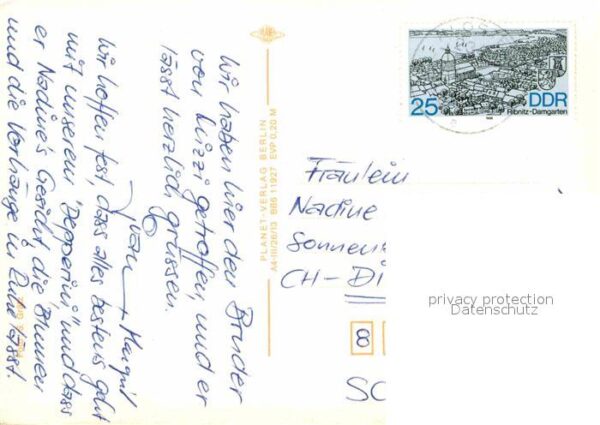 Wir haben hier den Bruder
von Lizzi getroffen, und er
lässt herzlich grüssen.
Wir hoffen fest, dass alles bestens geht
mit unserem "Depperini," und dass
er Nadine's Gesicht, die Blumen
und die Vorhänge in Ruhe lässt.
Margrit
PLANET-VERLAG BERLIN
A4-III/26/13 BBS 11927 EVP 0,20 M
25 DDR
Ribnitz-Damgarten
Fräulein
Nadine
Sonnen
CH-Di
8
SC
privacy protection
Datenschutz